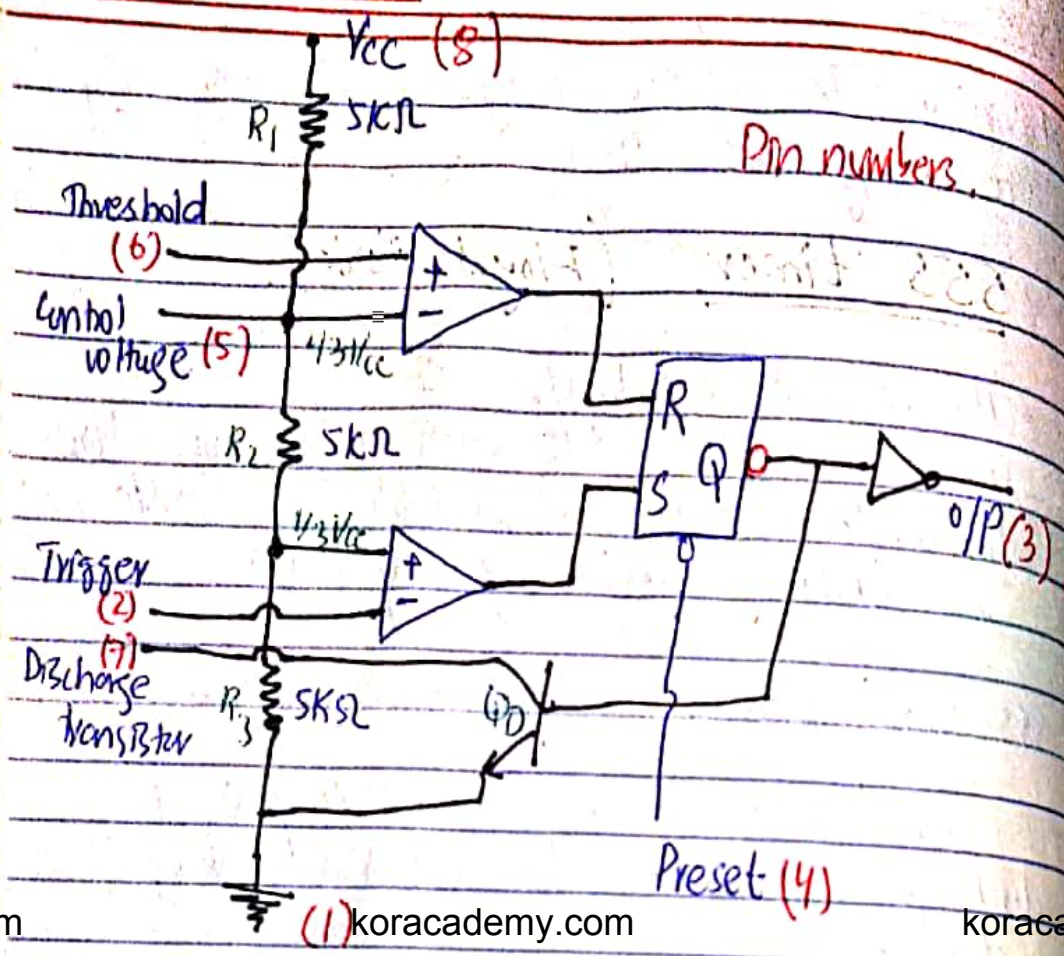 Vcc (8)
R1 5KΩ
Pin numbers.
Threshold
(6)
+
-
Control
voltage (5)
R2 5KΩ
R
S
Q
O/P (3)
1/3 Vcc
Trigger
(2)
+
-
(7)
Discharge
transistor
R3 5KΩ
QD
Preset (4)
(1)
koracademy.com